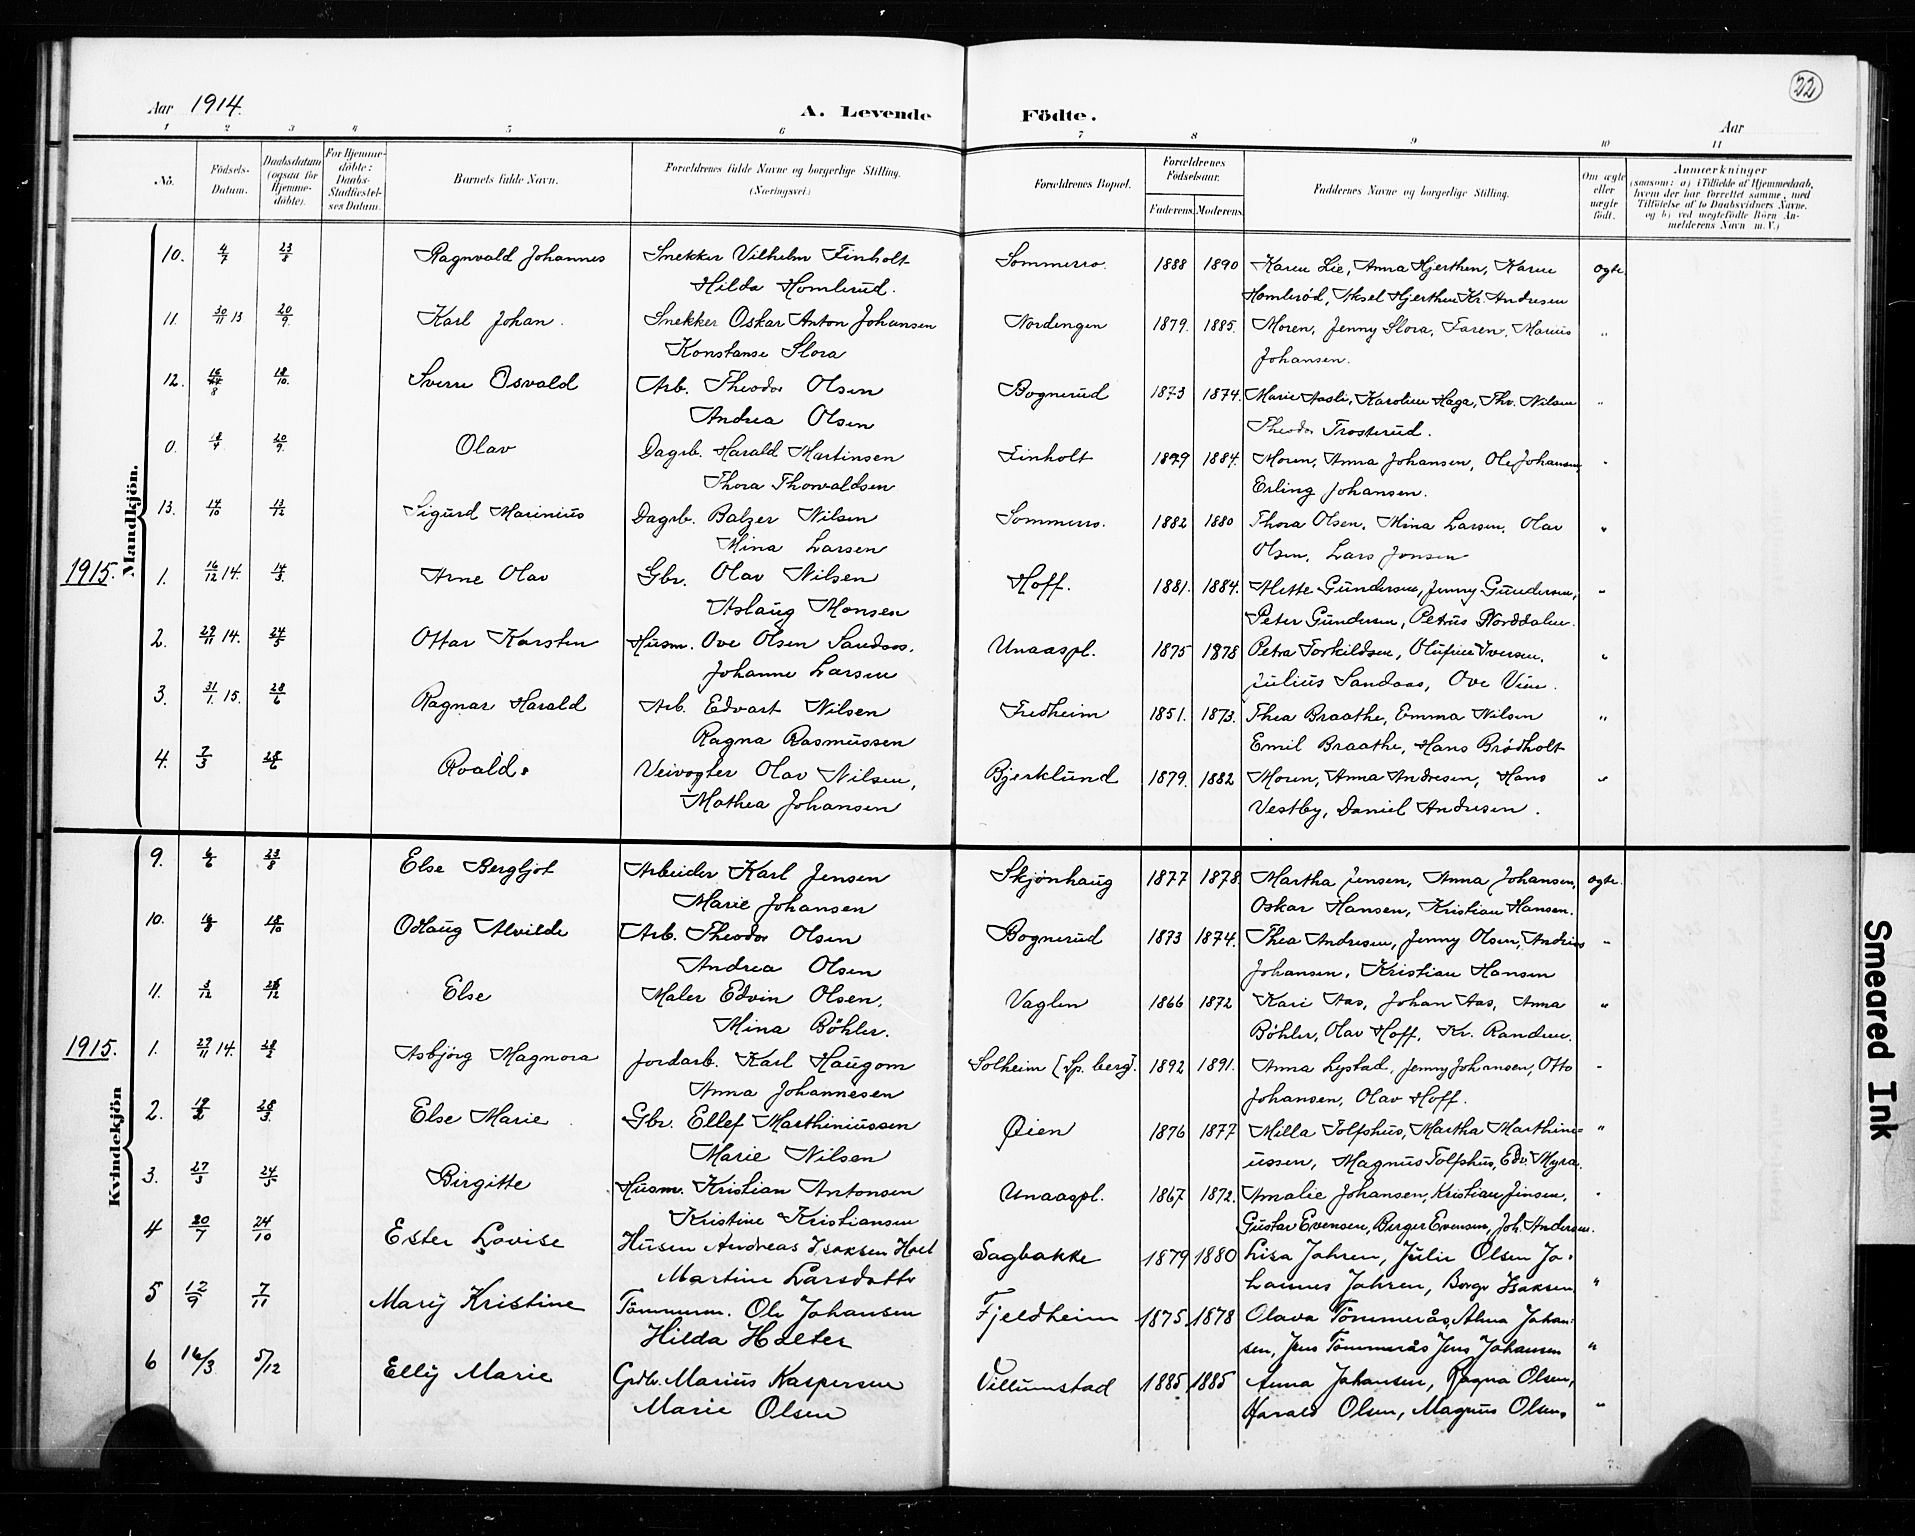 22
Aar 1914.
A. Levende Födte.
Aar
1 2 3 4 5 6 7 8 9 10 11
No. Födsels-Datum. Daabsdatum (ogsaa for Hjemme-döbte). For Hjemme-döbte: Daabs-Stadfæstel-ses Datum. Barnets fulde Navn. Forældrenes fulde Navne og borgerlige Stilling. (Næringsvei) Forældrenes Bopæl. Forældrenes Födselsaar. Faderens. Moderens. Faddernes Navne og borgerlige Stilling. Om ægte eller uægte födt. Anmærkninger (saasom: a) i Tilfælde af Hjemmedaab, hvem der har forrettet samme, med Tilföielse af to Daabsvidners Navne, og b) ved uægtefödte Börn An-melderens Navn m. V.)
Mandkjön.
10. 4/7 23/8 Ragnvald Johannes Snekker Vilhelm Finholt Sommerro. 1888 1890 Karen Lie, Anna Hjerthen, Karen ægte.
Hilda Homlerud. Homleröd, Aksel Hjerthen Kr. Andresen
11. 30/11 13 20/9. Karl Johan. Snekker Oskar Anton Johansen Nordengen 1879. 1885. Moren, Jenny Slora, Faren, Marius "
Konstanse Slora Johansen.
12. 16/8 18/10. Sverre Osvald Arb. Theodor Olsen Bognerud 1873 1874. Marie Aasli, Karoline Haga, Thv. Nilsen "
Andrea Olsen Theodor Trosterud.
0. 18/4 20/9. Olav Dagrb. Harald Martinsen Finholt 1879 1884. Moren, Anna Johansen, Ole Johansen "
Thora Thorvaldsen Erling Johansen.
13. 14/10 13/12 Sigurd Marinius Dagrb. Balzer Nilsen Sommerro. 1882 1880 Thora Olsen, Mina Larsen, Olav "
Mina Larsen Olsen, Lars Jonsen
1915. 1. 16/12 14. 14/3. Arne Olav Gbr. Olav Nilsen Hoff. 1881. 1884. Mette Gundersen, Jenny Gundersen, "
Aslaug Monsen Peter Gundersen, Petrus Norddalen.
2. 29/11 14. 24/5 Ottar Karsten Husm. Ove Olsen Sandaas. Unaaspl. 1875 1878 Petra Torkildsen, Olufine Iversen, "
Johanne Larsen Julius Sandaas, Ove Vien.
3. 31/1 15. 28/6 Ragnar Harald Arb. Edvart Nilsen Fredheim 1851. 1873. Thea Braathe, Emma Nilsen "
Ragna Rasmussen Emil Braathe, Hans Brödholt
4. 7/3 28/6 Roald. Veivogter Olav Nilsen, Bjerklund 1879. 1882 Moren, Anna Andresen, Hans "
Mathea Johansen Vestby, Daniel Andresen.
Kvindekjön
9. 4/6 23/8 Else Bergljot Arbeider Karl Jensen Skjønhaug 1877 1878. Martha Jensen, Anna Johansen, ægte.
Marie Johansen Oskar Hansen, Kristian Hansen.
10. 16/8 18/10 Odlaug Alvilde Arb. Theodor Olsen Bognerud 1873 1874. Thea Andresen, Jenny Olsen, Andreas "
Andrea Olsen Johansen, Kristian Hansen
11. 3/12 26/12 Else Maler Edvin Olsen, Vaglen 1866 1872 Kari Aas, Johan Aas, Anna "
Mina Böhler. Böhler, Olav Hoff, Kr. Randem.
1915. 1. 29/11 14. 28/2 Asbjörg Magnora Jordarb. Karl Haugom Solheim [Sp. berg]. 1892 1891. Anna Lystad, Jenny Johansen, Otto "
Anna Johannesen Johansen, Olav Hoff.
2. 19/2 28/3. Else Marie Gbr. Ellef Marthiniussen Øien 1876 1877 Milla Tolfshus, Martha Marthini= "
Marie Nilsen ussen, Magnus Tolfshus, Edv. Myra.
3. 27/3 24/5 Birgitte Husm. Kristian Antonsen Unaaspl. 1867 1872. Amalie Johansen, Kristian Jensen, "
Kristine Kristiansen Gustav Evensen, Berger Evensen, Joh. Andersen.
4 20/7 24/10 Ester Lovise Husm Andreas Isaksen Holt Sagbakke 1879 1880 Lisa Jahren, Julie Olsen Jo=
Martine Larsdatter hannes Jahren, Borge Isaksen "
5 12/9 7/11 Mary Kristine Tömmerm. Ole Johansen Fjeldheim 1875. 1878 Olava Tömmerås, Alma Johan=
Hilda Holter sen, Jens Tömmerås Jens Johansen "
6 16/3 5/12 Elly Marie Grdbr. Marius Kaspersen Villumstad 1885 1885 Anna Johansen, Ragna Olsen,
Marie Olsen Harald Olsen, Magnus Olsen. "
Smeared Ink